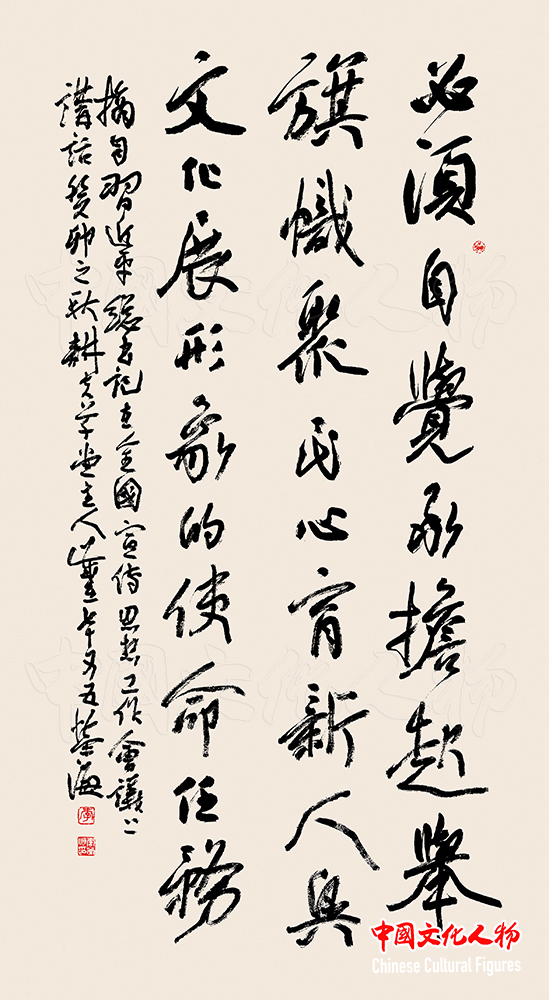 必須自覺承擔起舉
旗幟聚民心育新人興
文化展形象的使命任務
摘自習近平總書記在全國宣傳思想工作會議上
講話癸卯之秋耕堂主人又五榮海
中國文化人物
中國文化人物
中國文化人物
Chinese Cultural Figures